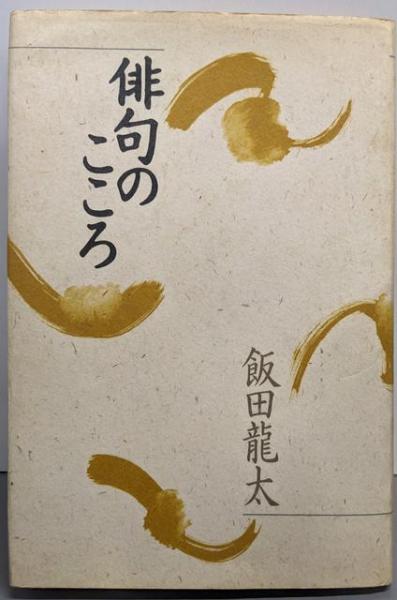 俳句の
こころ
飯田龍太